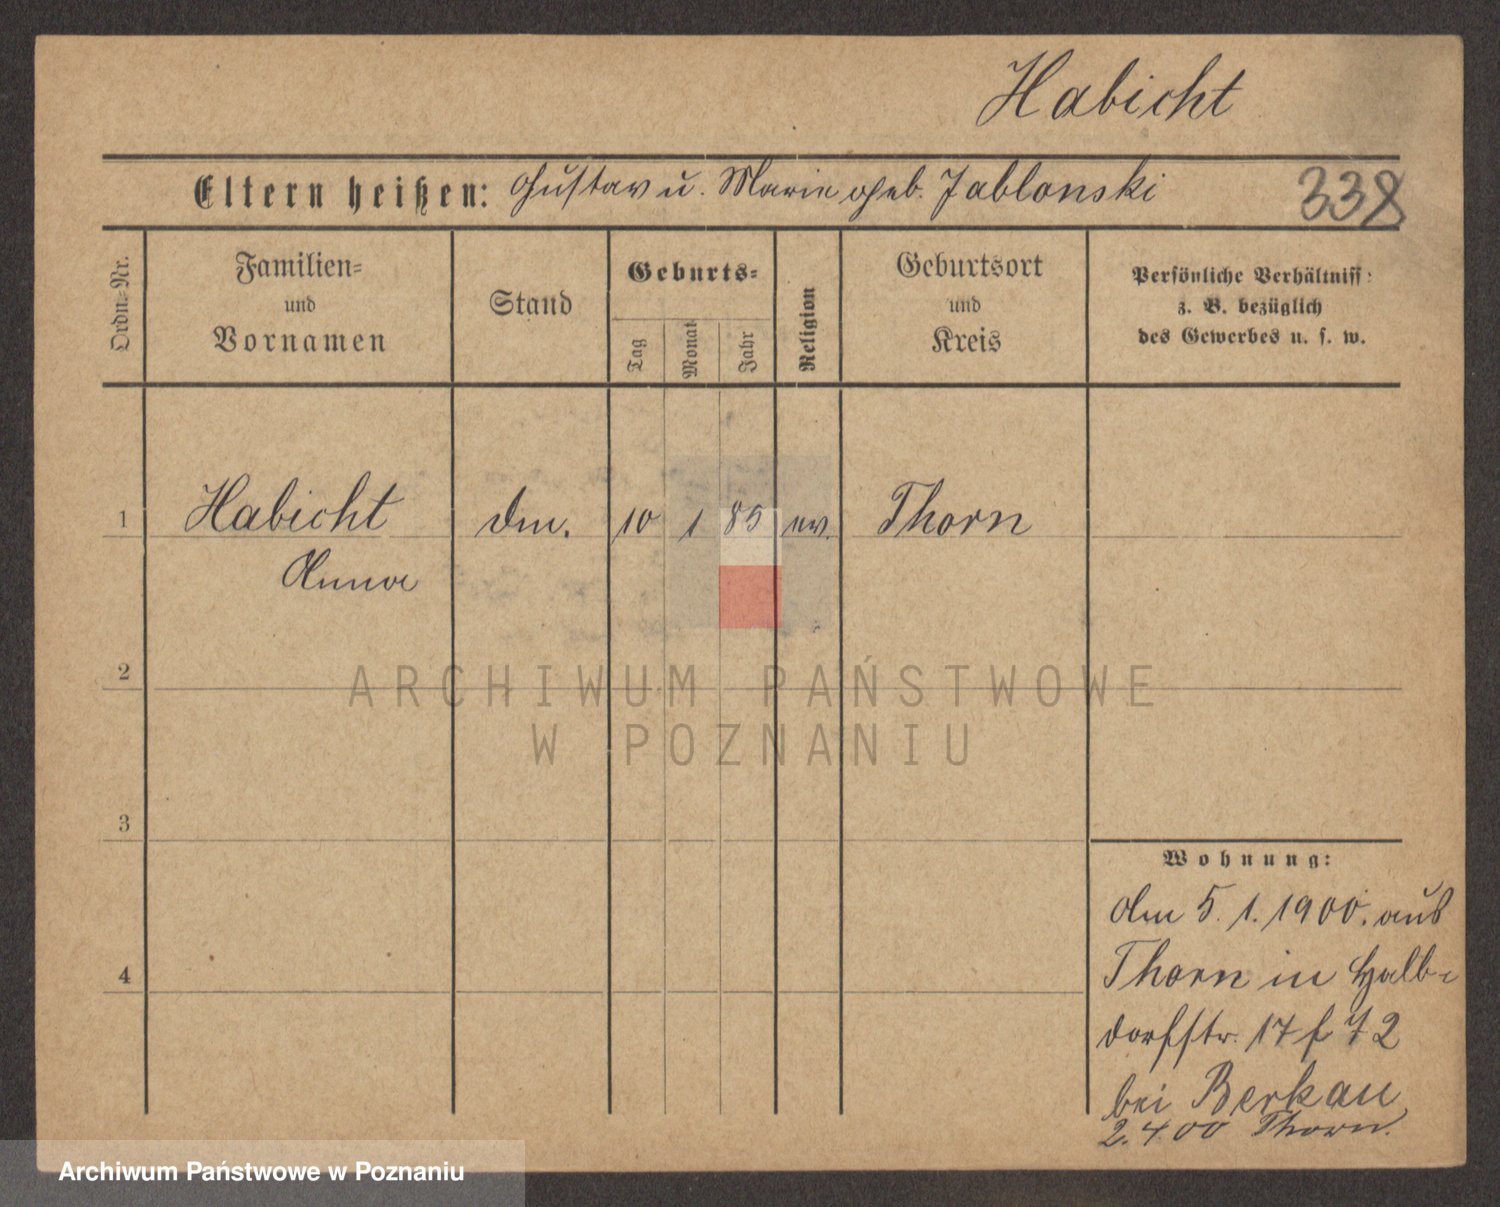 Habicht
Eltern heißen: Gustav u. Marie geb. Jablonski
338
Ordn.-Nr.
Familien-
und
Vornamen
Stand
Geburts-
Tag
Monat
Jahr
Religion
Geburtsort
und
Kreis
Persönliche Verhältniss
z. B. bezüglich
des Gewerbes u. s. w.
1 Habicht 10 1 85 ev. Thorn
Anna
2
ARCHIWUM PAŃSTWOWE
W POZNANIU
3
4
Wohnung:
Am 5. 1. 1900. aus
Thorn in Halb-
dorfstr. 17
bei Berkau
2.4.00 Thorn.
Archiwum Państwowe w Poznaniu